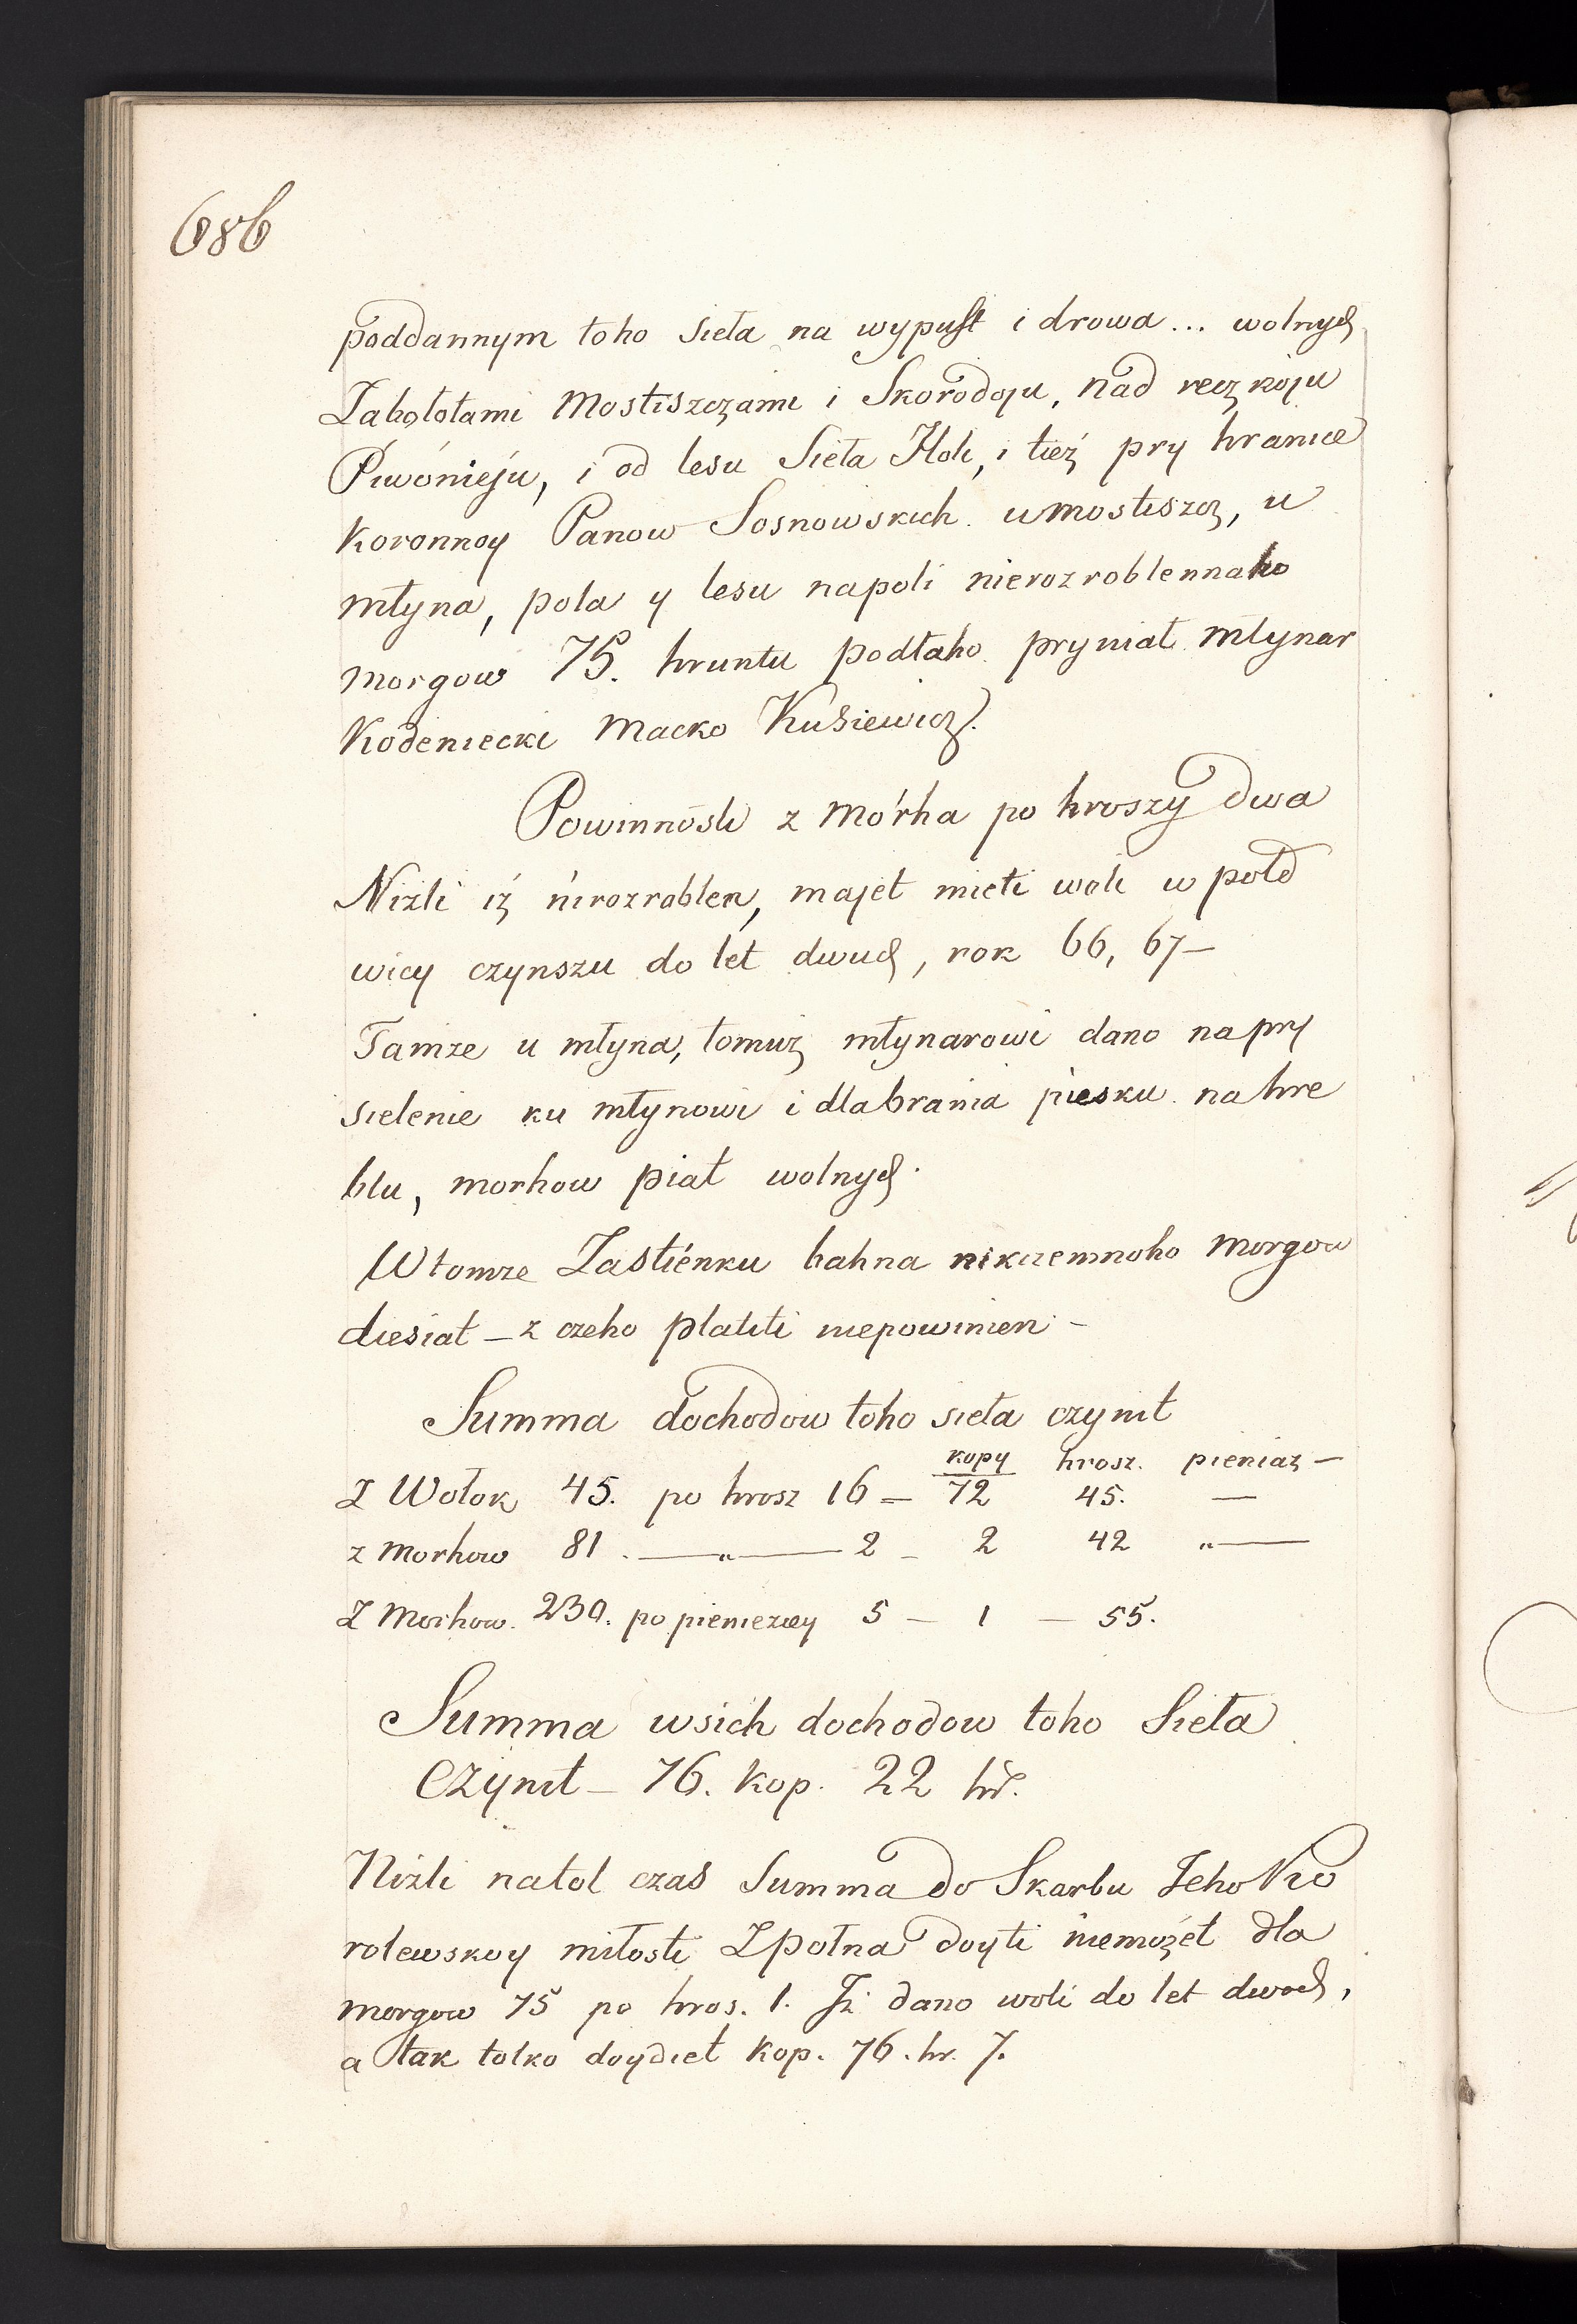 686
poddannym toho sieła na wypust i drowa... wolnych
Zabołotami Mostiszczami i Skorodoju, nad reczkoju
Piwónieju, i od lesu Sieła Holi, i tież pry hranice
Koronnoy Panow Sosnowskich u mostiszcz, u
młyna, pola y lesu napoli nierozroblennaho
morgow 75. hruntu podłaho pryniał młynar
Kodeniecki Macko Kusiewicz.
Powinnosti z mórha po hroszy dwa
Niżli iż nirozroblen, majet mieti woli w poło
wicy czynszu do let dwuch, rok 66, 67 —
Tamże u młyna, tomuż młynarowi dano na pry
sielenie ku młynowi i dla brania piesku na hre
blu, morhow piat wolnych.
W tomże Zastienku bahna nikczemnoho morgow
diesiat — z czeho płatiti niepowinien —
Summa dochodow toho sieła czynit
kopy hrosz. pieniaz —
Z Wołok 45. po hrosz 16 — 72 45. —
z morhow 81. — „ — 2 — 2 42 „ —
Z Morhow. 230. po pieniezcy 5 — 1 — 55.
Summa wsich dochodow toho Sieła
Czynit — 76. kop. 22 hr.
Niżli natol czas Summa do Skarbu Jeho Kro
rolewskoy miłosti Zpołna doyti niemożet dla
morgow 75 po hros. 1. Iż dano woli do let dwoch,
a tak tolko doydiet kop. 76. hr. 7.